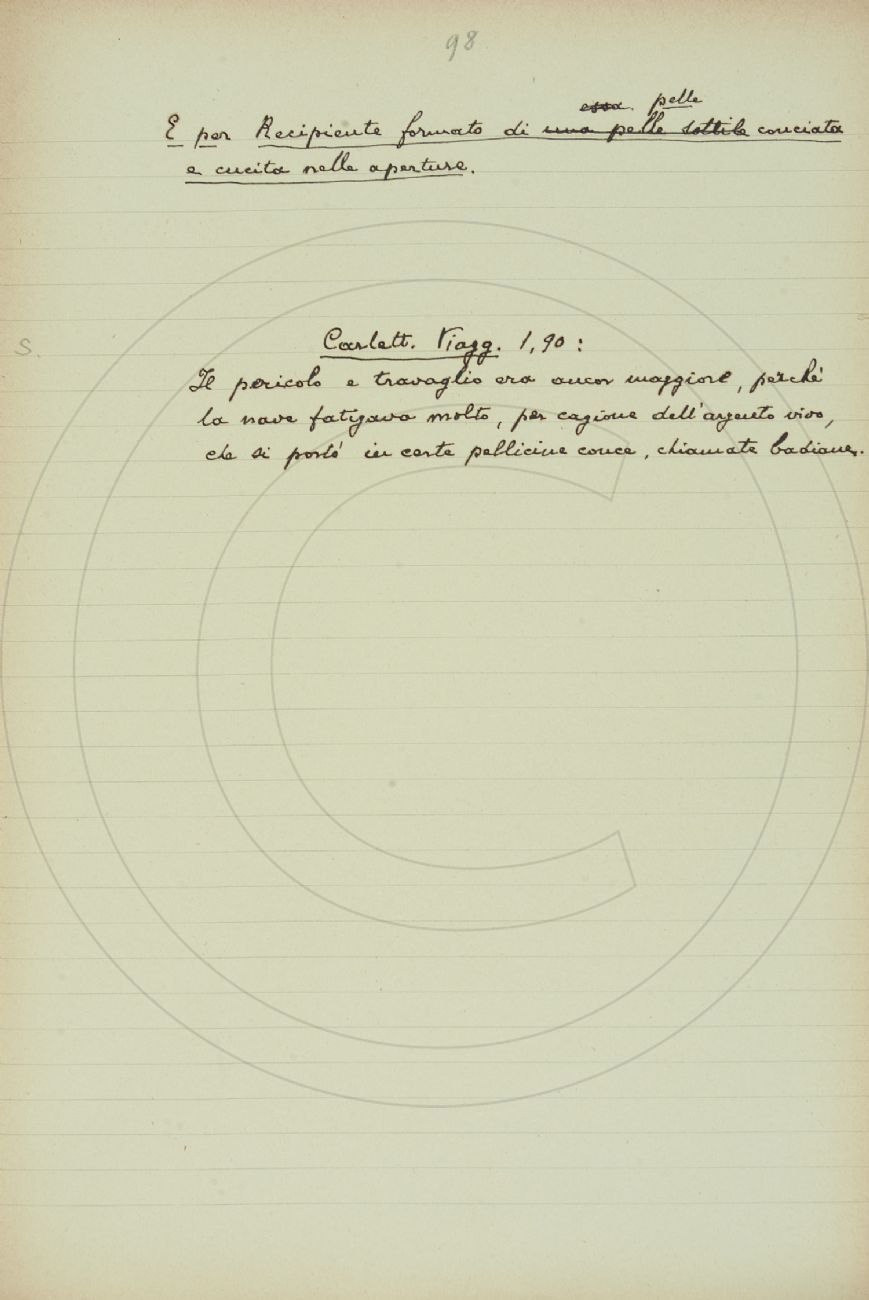 98
essa pelle
E per Recipiente formato di una pelle sottile conciata
e cucita nelle aperture.
S.
Carlett. Viagg. 1, 90:
Il pericolo e travaglio era ancor maggiore, perchè
la nave fatigava molto, per cagione dell'argento vivo,
che si portò in certe pellicine conce, chiamate badiane.